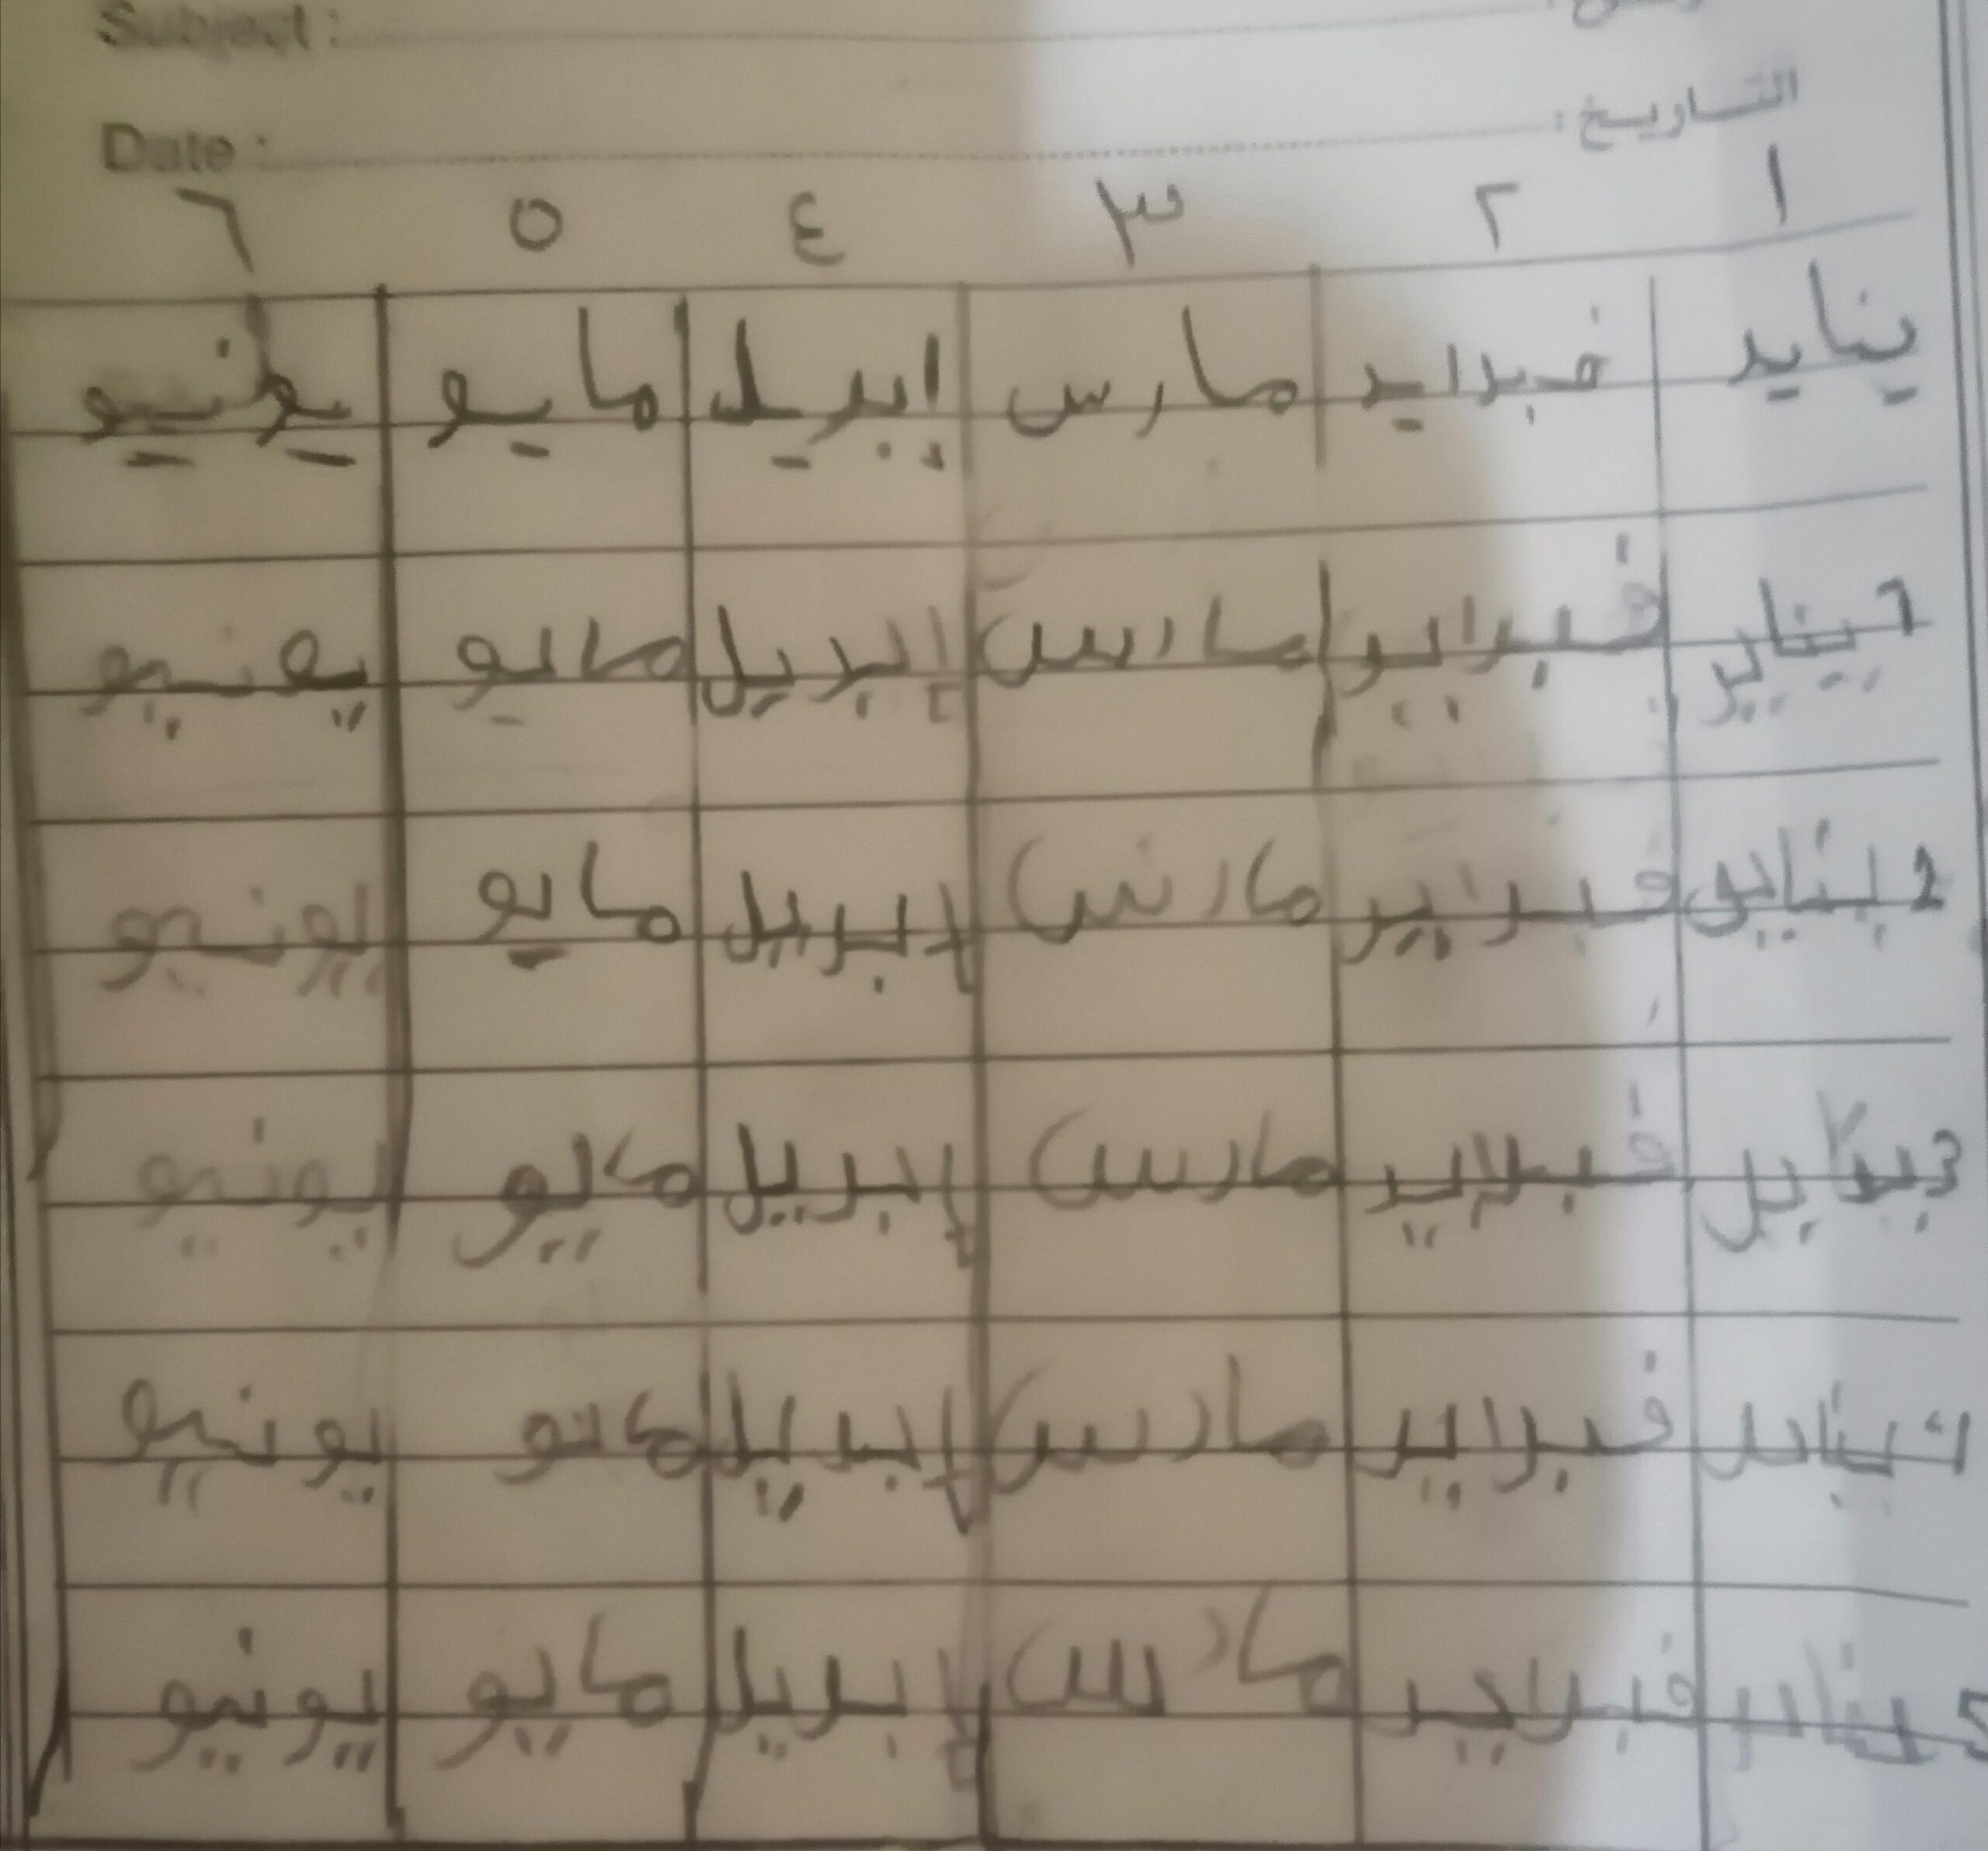 Subject :
Date : التاريخ :
١ ٢ ٣ ٤ ٥ ٦
يناير فبراير مارس ابريل مايو يونيو
1 يناير فبراير مارس إبريل مايو يونيو
2 يناير فبراير مارس إبريل مايو يونيو
3 فبراير مارس إبريل مايو يونيو
4 يناير فبراير مارس إبريل مايو يونيو
5 يناير فبراير مارس إبريل مايو يونيو